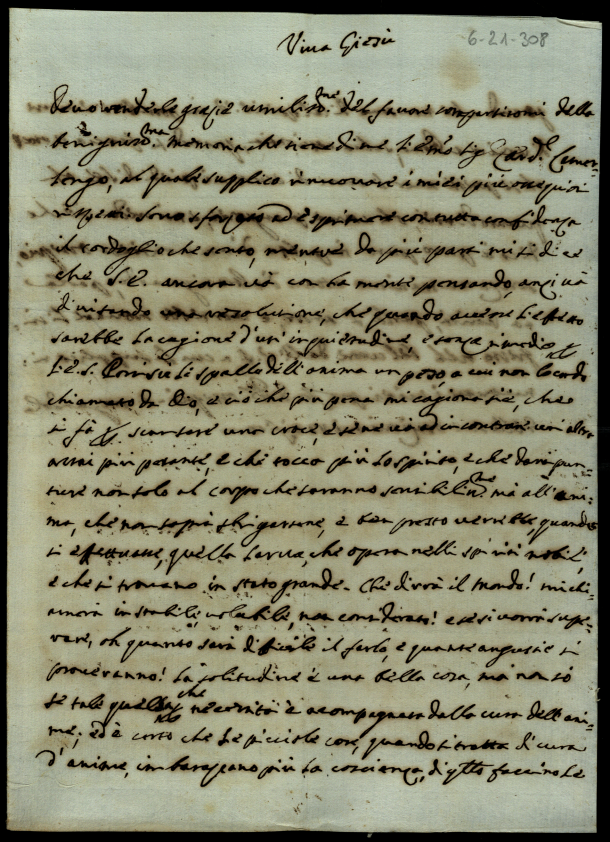 Viva Giesù
6-21-308
Devo rendere le grazie umiliss.me del favore compartitomi della
benigniss.ma memoria che tiene di me l'Em.o Sig. Card.l Camer-
lengo, al quale supplico rinuovare i miei più ossequiosi
rispetti. Sono sforzato ad esprimere con tutta confidenza
il cordoglio che sento, mentre da più parti mi si dice
che S. E. ancora và con la mente pensando, anzi và
una resoluzione, che quando avesse l'effetto
sarebbe la cagione d'un' inquietudine, e senza rimedio
le spalle dell'anima un peso, a cui non
chiamato da Dio, e ciò che più pena mi cagiona si è, che
si fà scansare una croce, e se ne và ad incontrare un'altra
assai più pesante, e che tocca più lo spirito, e che darà pun-
ture non solo al corpo che saranno sensibiliss.me mà all'ani-
ma, che non saprà sbrigarsene, e ben presto verrebbe, quando
si effettuasse, quella che opera nelli spiriti nobili,
e che si trovano in stato grande. Che dirà il Mondo! mi chi-
amerà instabile, volubile, non considerato! e se si vorrà supe-
rare, oh quanto sarà difficile il farlo, e quante angustie si
proveranno! La solitudine è una bella cosa, mà non sò
se tale quella che necessità è accompagnata dalla cura dell'ani-
me; ed è certo che le picciole cose, quando si tratta di cura
d'anime, imbarazzano più la coscienza, di q.llo faccino le